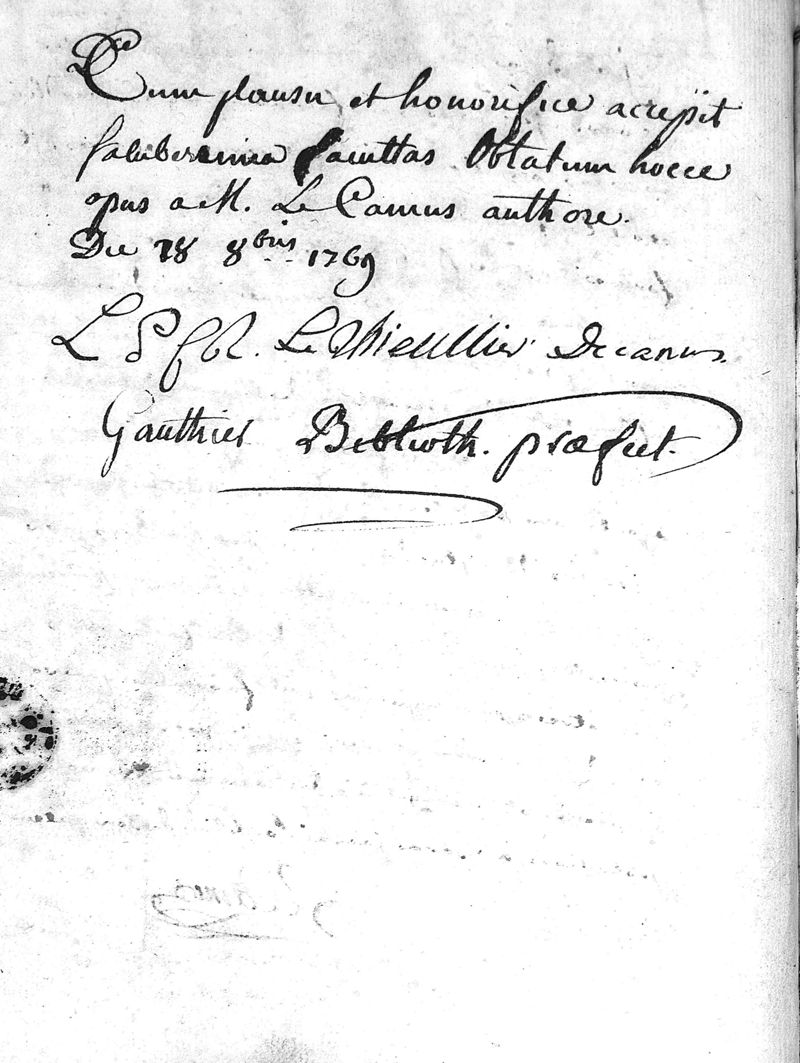 Cum plausu et honorifice accepit
saluberrima facultas Oblatum hocce
opus a M. Le Camus authore.
Die 18 8bris 1769
L. P. f. R. Le Thieullier Decanus.
Gauthier Biblioth. præfect.